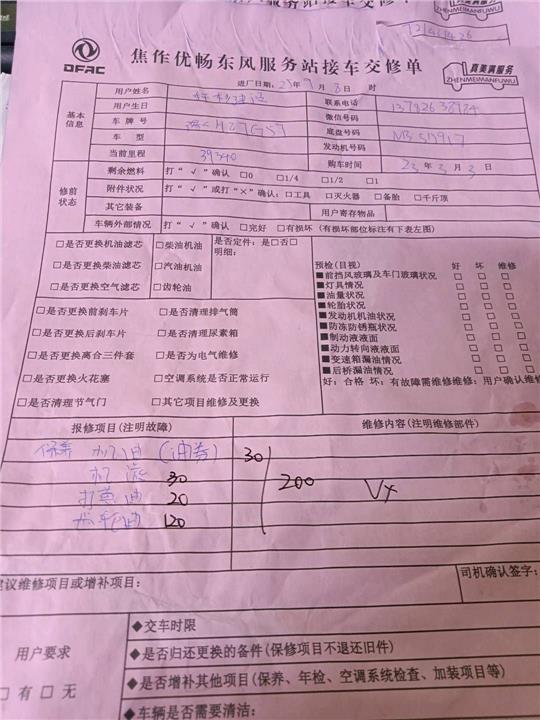 DFAC
焦作优畅东风服务站接车交修单
真美满服务
ZHENMEIMANFUWU
进厂日期: 23年9月8日 时
基本信息
用户姓名
联系电话
用户生日
微信号码
车牌号
底盘号码
车型
发动机号码
当前里程 39340
购车时间 23年3月3日
修前状态
剩余燃料 打“√”确认 □0 □1/4 □1/2 □1
附件状况 打“√”或打“×”确认：□工具 □灭火器 □备胎 □千斤顶
其它装备 用户寄存物品
车辆外部情况 打“√”确认 □完好 □有损坏 (有损坏部位标注有下表左图)
□是否更换机油滤芯 □柴油机油 是否定件：是□否□
□是否更换柴油滤芯 □汽油机油 明细：
□是否更换空气滤芯 □齿轮油
预检(目视) 好 坏 维修
■前挡风玻璃及车门玻璃状况 □ □ □
■灯具情况 □ □ □
■油量状况 □ □ □
■轮胎状况 □ □ □
■发动机机油状况 □ □ □
■防冻防锈瓶状况 □ □ □
■制动液液面 □ □ □
■动力转向液液面 □ □ □
■变速箱漏油情况 □ □ □
■后桥漏油情况 □ □ □
好：合格 坏：有故障需维修维修：用户确认维修
□是否更换前刹车片 □是否清理排气筒
□是否更换后刹车片 □是否清理尿素箱
□是否更换离合三件套 □是否为电气维修
□是否更换火花塞 □空调系统是否正常运行
□是否清理节气门 □其它项目维修及更换
报修项目(注明故障) 维修内容(注明维修部件)
保养 机油 (油券) 30
机滤 30
200
打黄油 20
120
建议维修项目或增补项目:
司机确认签字:
用户要求
□有□无
◆交车时限
◆是否归还更换的备件(保修项目不退还旧件)
◆是否增补其他项目(保养、年检、空调系统检查、加装项目等)
◆车辆是否需要清洁: